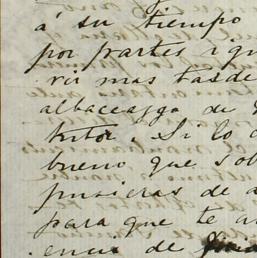 á su tiempo
por partes i que
rir mas tarde
albaceazgo de
tutor. Si lo
bueno que sob
pusieras de a
para que te a
encia de